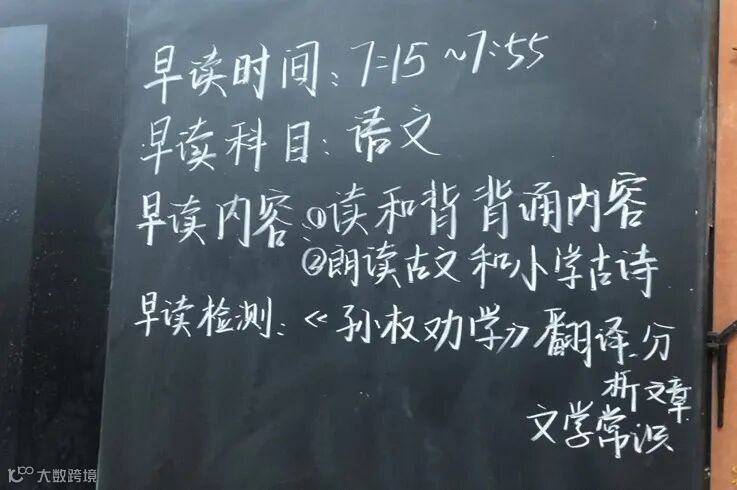 早读时间：7:15~7:55
早读科目：语文
早读内容：①读和背背诵内容
②朗读古文和小学古诗
早读检测：《孙权劝学》翻译、分
析文章
文学常识
大数跨境